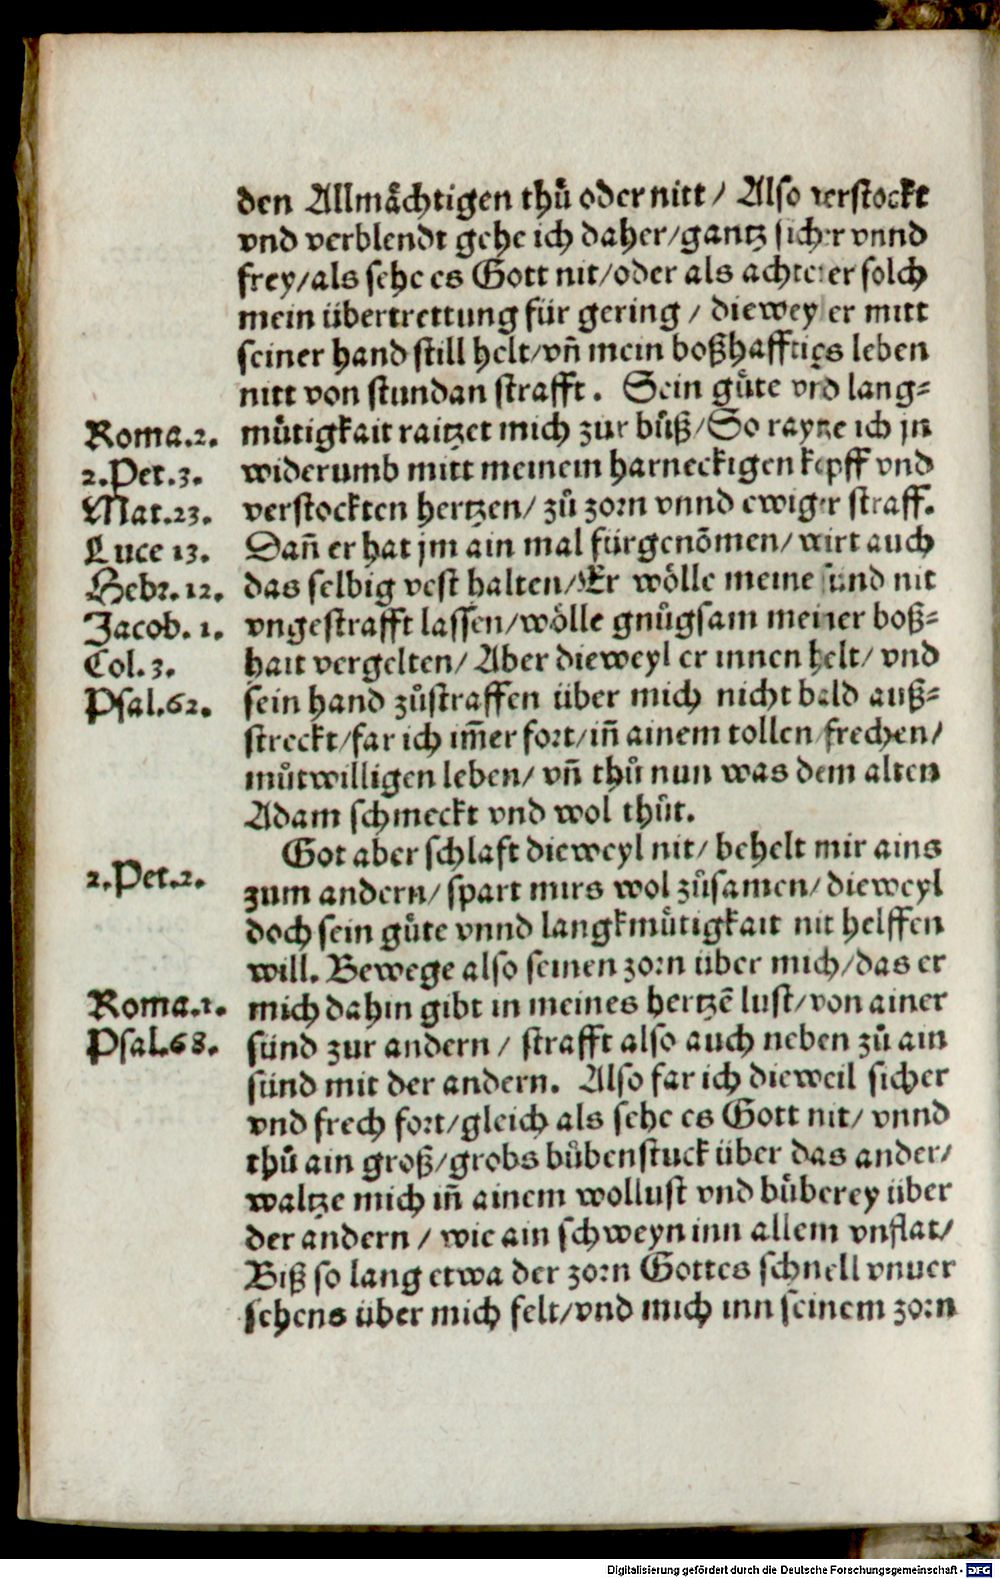 den Allmaͤchtigen thuͦ oder nitt / Also verstockt
vnd verblendt gehe ich daher/gantz sicher vnnd
frey/als sehe es Gott nit/oder als achte er solch
mein übertrettung für gering / dieweyl er mitt
seiner hand still helt/vn̄ mein boßhafftigs leben
nitt von stundan strafft. Sein guͤte vnd lang⸗
Roma.2. muͤtigkait raitzet mich zur buͦß/So raytze ich jn
2.Pet.3. widerumb mitt meinem harneckigen kopff vnd
Mat.23. verstockten hertzen/ zuͦ zorn vnnd ewiger straff.
Luce 13. Dan̄ er hat jm ain mal fürgenōmen/ wirt auch
Hebr. 12. das selbig vest halten/Er woͤlle meine sünd nit
Jacob. 1. vngestrafft lassen/woͤlle gnuͦgsam meiner boß⸗
Col. 3. hait vergelten/ Aber dieweyl er innen helt/ vnd
Psal.62. sein hand zuͦstraffen über mich nicht bald auß⸗
streckt/far ich im̄er fort/in̄ ainem tollen frechen/
muͦtwilligen leben/ vn̄ thuͦ nun was dem alten
Adam schmeckt vnd wol thuͦt.
Got aber schlaft dieweyl nit/ behelt mir ains
2.Pet.2. zum andern/ spart mirs wol zuͦsamen/ dieweyl
doch sein guͤte vnnd langkmuͤtigkait nit helffen
will. Bewege also seinen zorn über mich/das er
Roma.1. mich dahin gibt in meines hertzē lust/von ainer
Psal.68. sünd zur andern / strafft also auch neben zuͦ ain
sünd mit der andern. Also far ich dieweil sicher
vnd frech fort/gleich als sehe es Gott nit/ vnnd
thuͦ ain groß/grobs buͦbenstuck über das ander/
waltze mich in̄ ainem wollust vnd buͤberey über
der andern / wie ain schweyn inn allem vnflat/
Biß so lang etwa der zorn Gottes schnell vnuer
sehens über mich felt/vnd mich inn seinem zorn
Digitalisierung gefördert durch die Deutsche Forschungsgemeinschaft - DFG